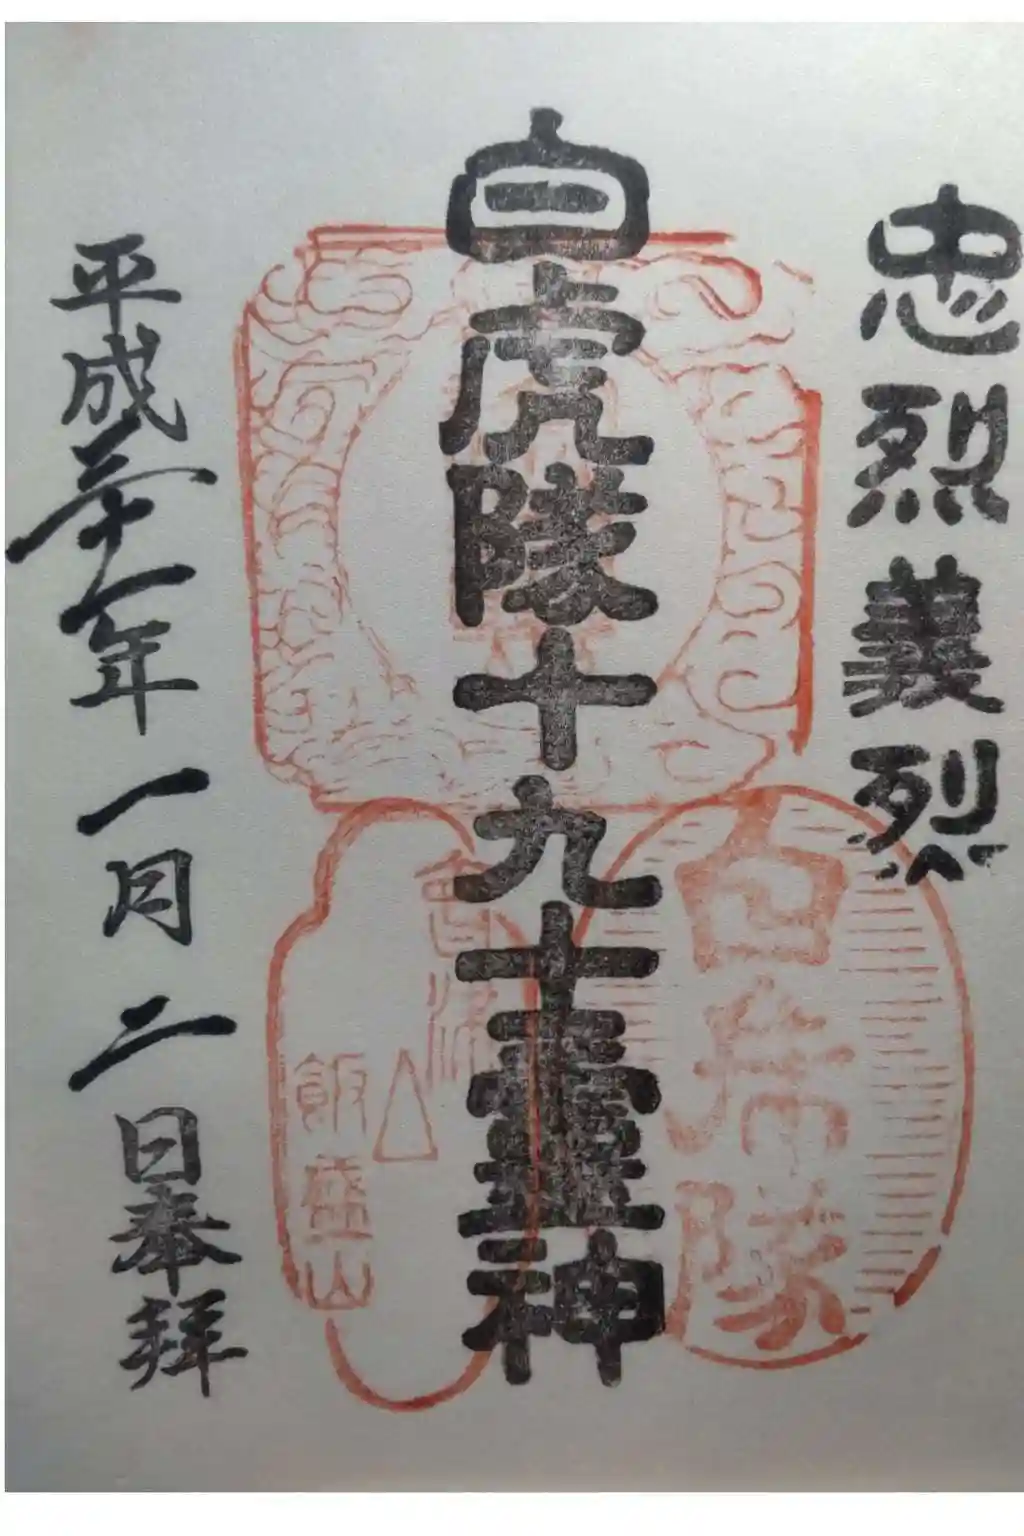 忠烈義烈
白虎隊十九士霊神
白虎隊
会津
飯盛山
平成三十一年一月二日奉拝